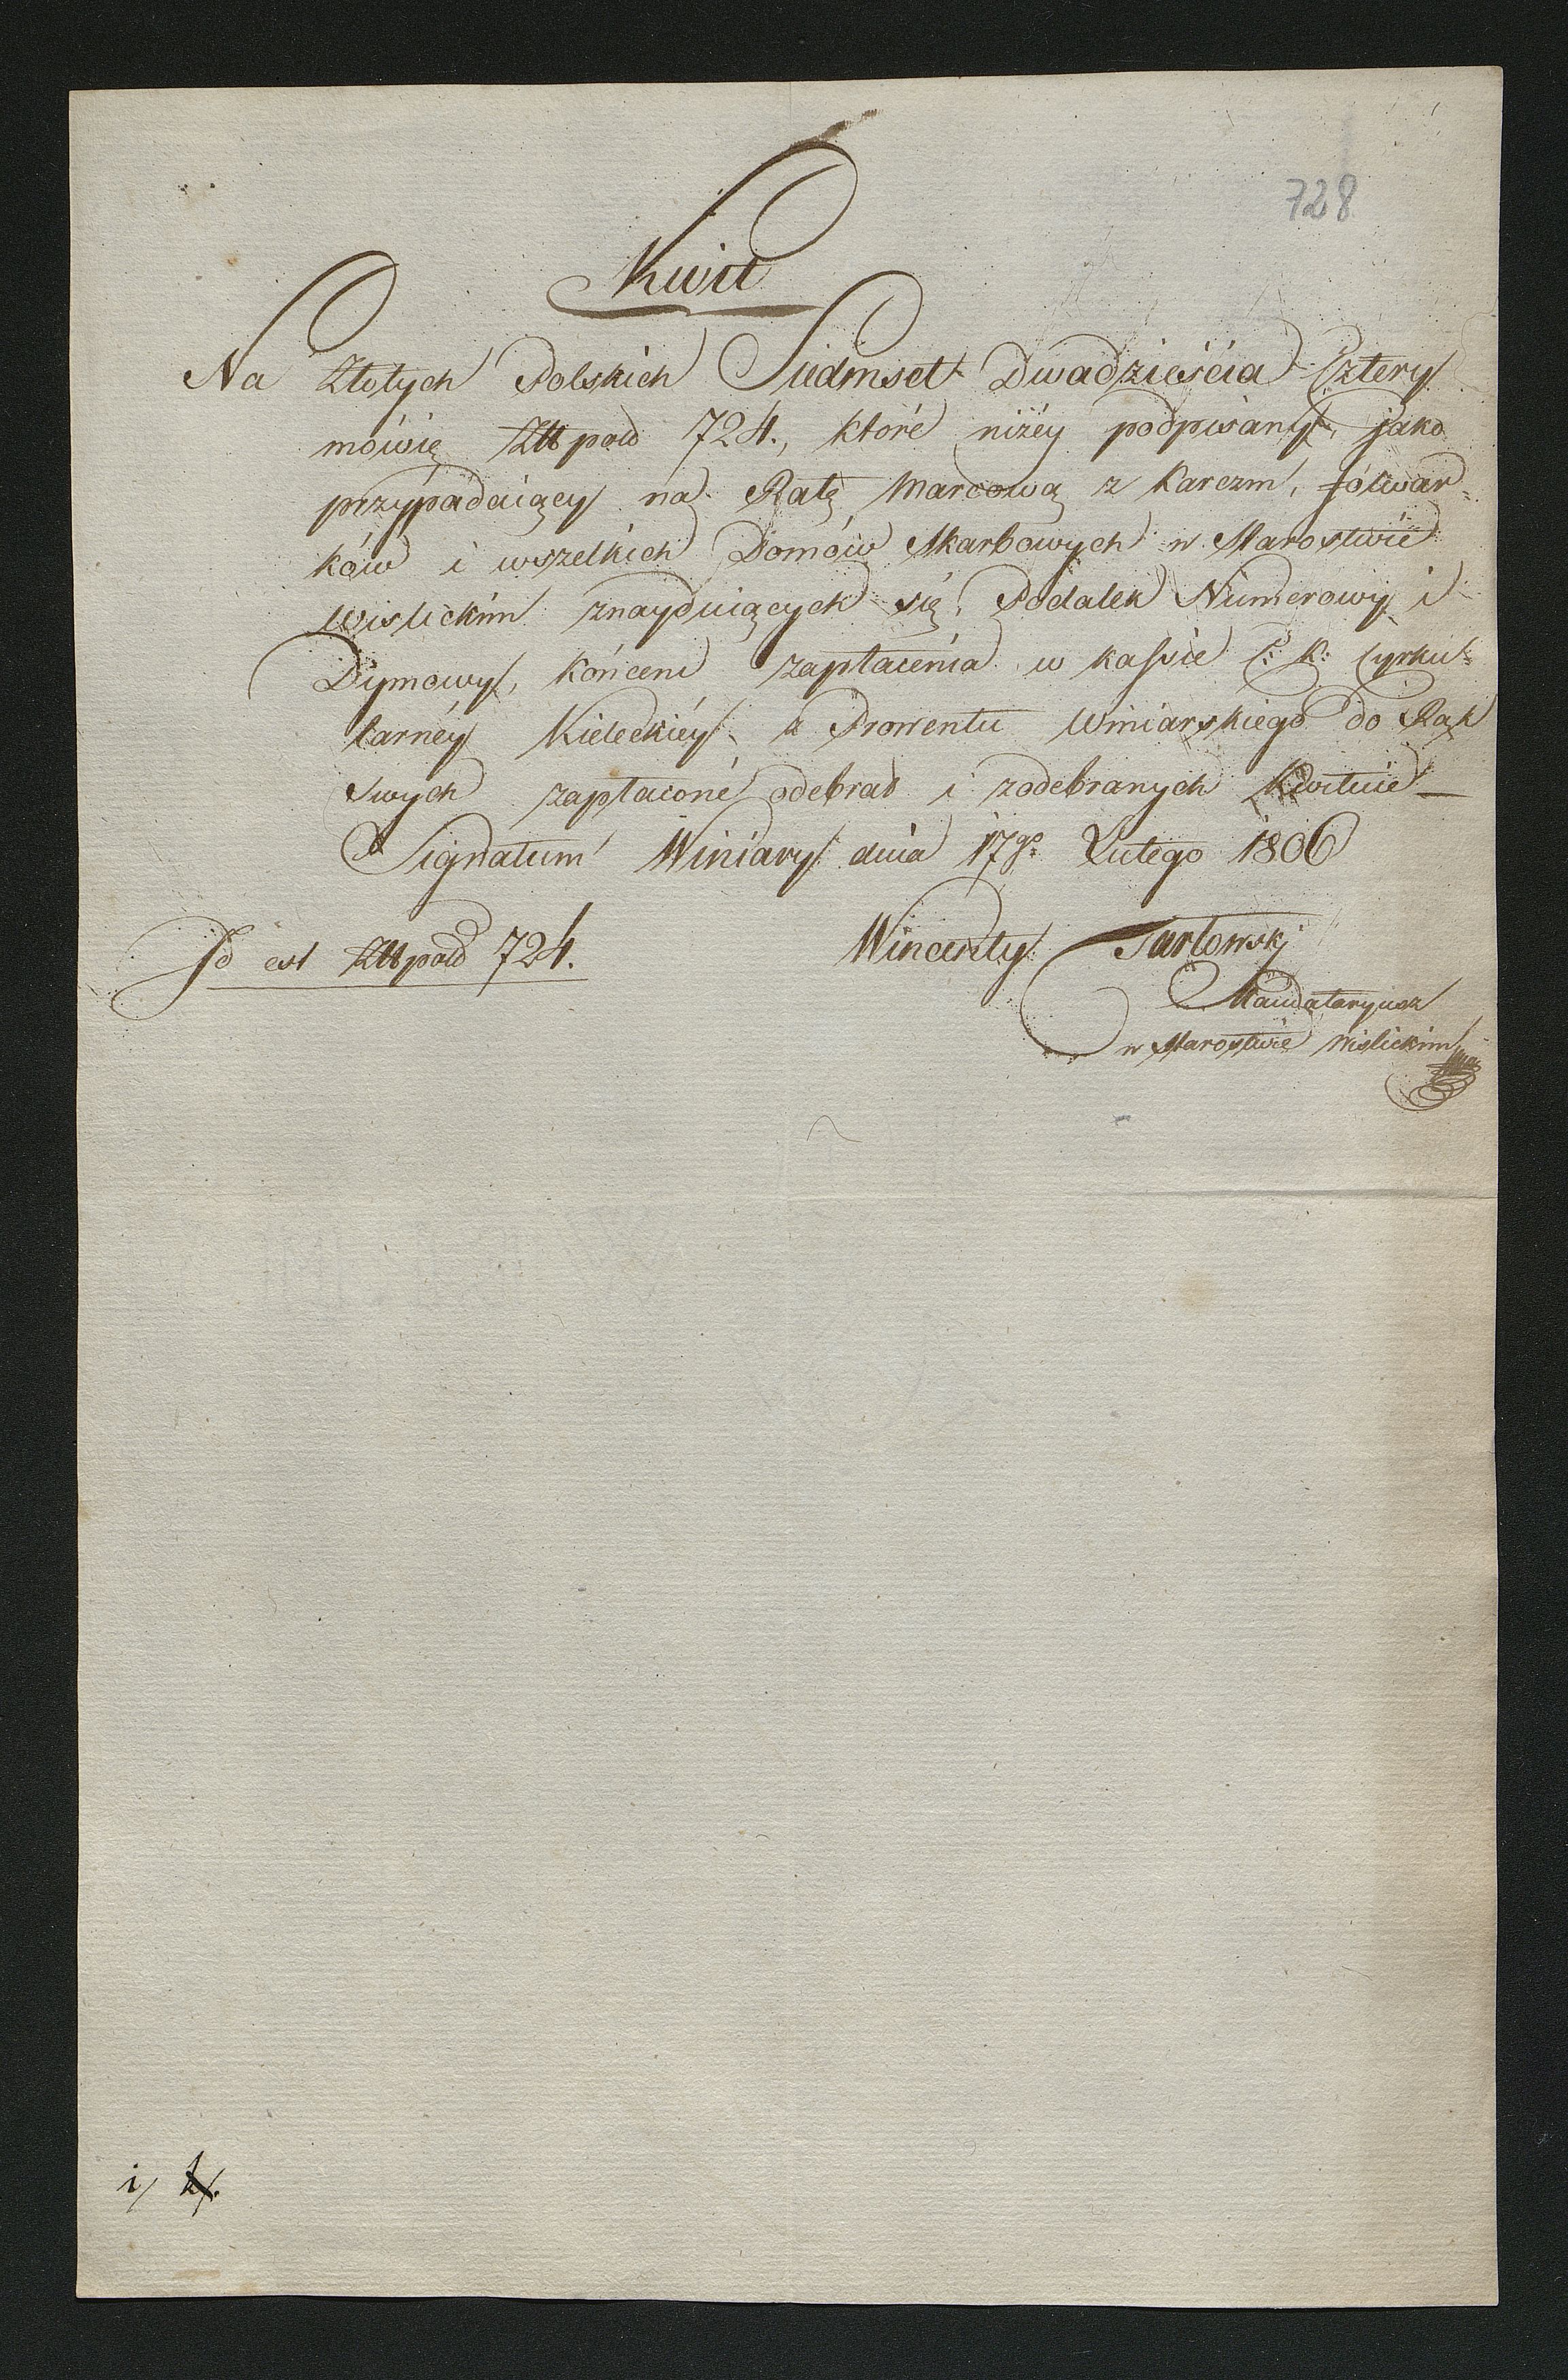 728
Kwit
Na Złotych Polskich Siedmset Dwadzieścia Cztery
mówię Złł pols 724., które niżéy podpisany, jako
przypadaiący na Ratę Marcową z Karczm, fólwar-
ków i wszelkich Domów Skarbowych w Starostwie
Wislickim znayduiących się, Podatek Numerowy i
Dymowy, końcem zapłacenia w kassie C: K: Cyrku-
larnéy Kieleckiéy, z Prowentu Winiarskiego do Rąk
swych zapłacone odebrał i z odebranych kwituie —
Signatum Winiary dnia 17go Lutego 1806
Id est Złł pols 724.
Wincenty Tarłowski
Mandataryusz
w Starostwie Wislickim
1/